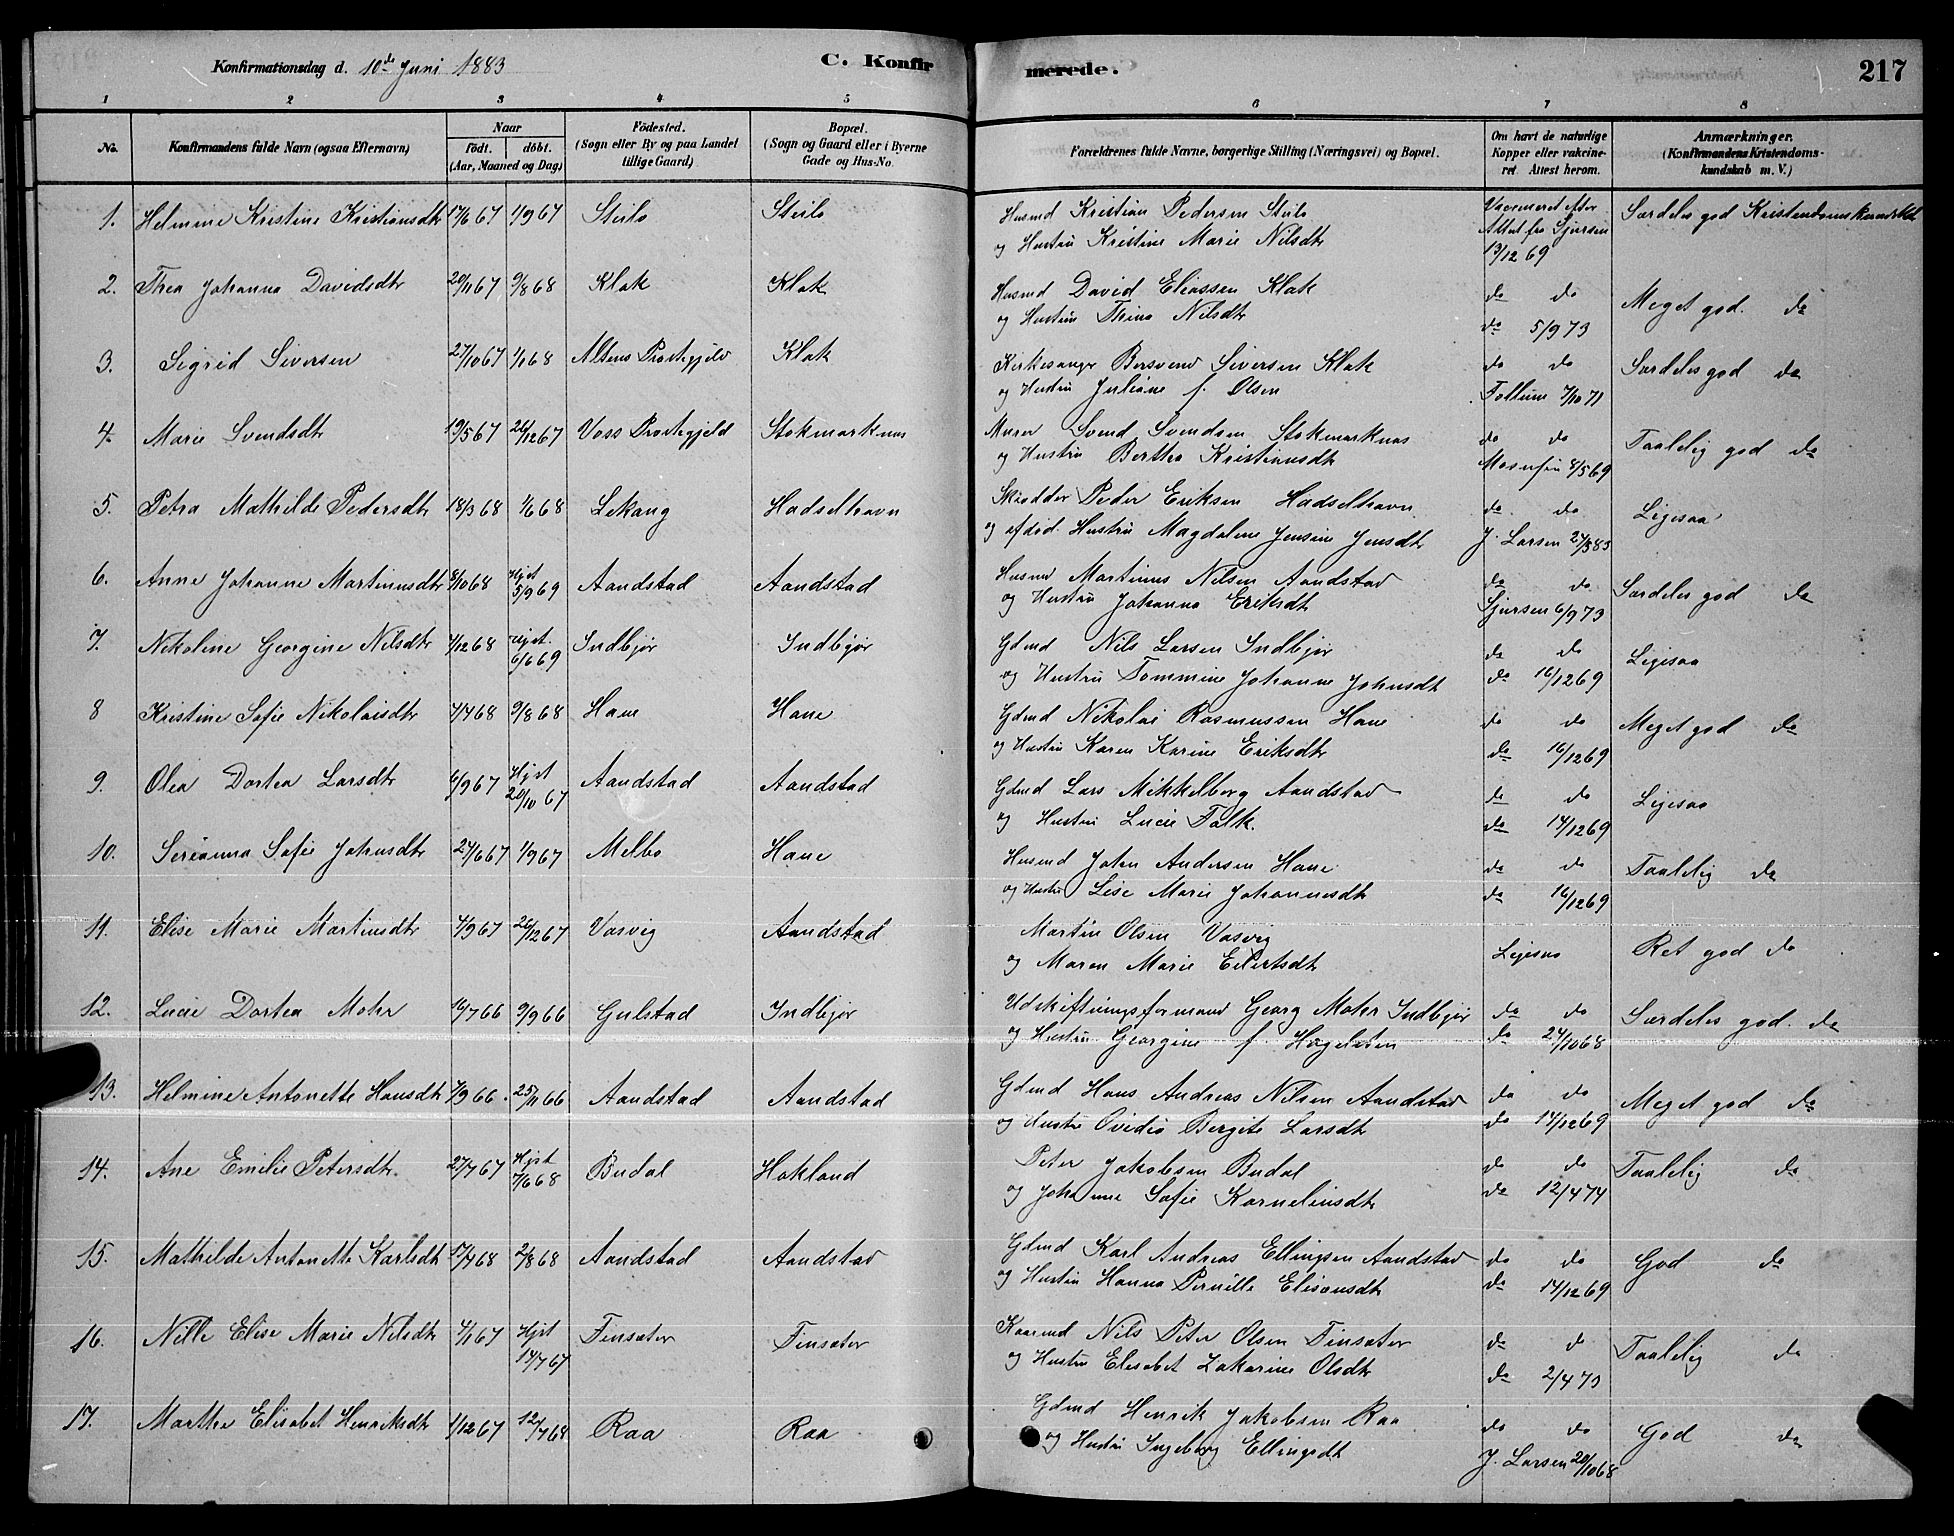 Konfirmationsdag d. 10de Juni 1883 C. Konfirmerede. 217
1 2 3 4 5 6 7 8
No. Konfirmandens fulde Navn (ogsaa Efternavn) Naar Födt. döbt. (Aar, Maaned og Dag) Födested. (Sogn eller By og paa Landet tillige Gaard) Bopæl. (Sogn og Gaard eller i Byerne Gade og Hus-No. Forældrenes fulde Navne, borgerlige Stilling (Næringsvei) og Bopæl. Om havt de naturlige Kopper eller vakcineret. Attest herom. Anmærkninger. (Konfirmandens Kristendomskundskab m. V.)
1. Helmine Kristine Kristiansdtr 17/6 67 1/9 67 Steilo Steilo Husmd Kristian Pedersen Steilo Vaccineret efter Særdeles god Kristendomskundskab
og Hustru Kristine Marie Nilsdtr Attest fra Sjursen
13/12 69
2. Thea Johanna Davidsdtr 20/11 67 9/8 68 Klak Klak Husmd David Eliassen Klak do do Meget god. do
og Hustru Trina Nilsdtr do 5/9 73
3. Sigrid Siversen 27/10 67 1/1 68 Altens Præstegjeld Klak Kirkesanger Bersvend Siversen Klak do do Særdeles god do
og Hustru Juliane f. Olsen 7/10 71
4. Marie Svendsdtr 19/5 67 26/12 67 Voss Præstegjeld Stokmarknes Murer Svend Svendsen Stokmarknes do do Taalelig god do
og Hustru Berthe Kristiansdtr 8/5 69
5. Petra Mathilde Pedersdtr 18/3 68 1/6 68 Lekang Hadselhavn Skrædder Peder Eriksen Hadselhavn do do Ligesaa
og afdød Hustru Magdalene Jensine Jensdtr J. Larsen 27/5 83
6. Anne Johanne Martinusdtr 8/10 68 Hjst 5/9 69 Aandstad Aandstad Husmd Martinus Nilsen Aandstad do do Særdeles god do
og Hustru Johanna Eriksdtr Sjursen 6/9 73
7. Nikoline Georgine Nilsdtr 7/12 68 Hjst. 6/6 69 Indbjør Indbjør Gdmd Nils Larsen Indbjør do do Ligesaa
og Hustru Tommine Johanne Johnsdtr do 16/12 69
8 Kristine Sofie Nikolaisdtr 4/4 68 9/8 68 Hane Hane Gdmd Nikolai Rasmussen Hane do do Meget god do
og Hustru Karen Karine Eriksdtr do 16/12 69
9. Olea Dortea Larsdtr 6/9 67 Hjst 20/10 67 Aandstad Aandstad Gdmd Lars Mikkelborg Aandstad do do Ligesaa
og Hustru Lucie Falk. do 14/12 69
10. Serianna Sofie Johnsdtr 24/6 67 1/9 67 Melbo Hane Husmd John Andersen Hane do do Taalelig do
og Hustru Lise Marie Johannesdtr do 16/12 69
11. Elise Marie Martinsdtr 4/9 67 26/12 67 Vasvig Aandstad Martin Olsen Vasvig Ligesaa Ret god do
og Maren Marie Eilertsdtr
12. Lucie Dortea Mohr 16/7 66 9/9 66 Gulstad Indbjør Udskiftningsformand Georg Mohr Indbjør do do Særdeles god. do
og Hustru Georgine f. Hagelsten do 24/10 68
13. Helmine Antonette Hansdtr 7/9 66. 25/11 66 Aandstad Aandstad Gdmd Hans Andreas Nilsen Aandstad do do Meget god do
og Hustru Ovidia Bergite Larsdtr do 14/12 69
14. Ane Emilie Petersdtr. 27/7 67 Hjst 7/6 68 Budal Hokland Peter Jakobsen Budal do do Taalelig do
og Johanne Sofie Korneliusdtr do 12/4 74
15. Mathilde Antonette Karlsdtr 17/4 68 2/8 68 Aandstad Aandstad Gdmd Karl Andreas Ellingsen Aandstad do do God do
og Hustru Hanna Pernille Eliasensdtr do 14/12 69
16. Nille Elise Marie Nilsdtr 4/1 67 Hjst 14/7 67 Finsæter Finsæter Kaarmd Nils Peter Olsen Finsæter do do Taalelig do
og Hustru Elisabet Zakarine Olsdtr do 2/4 73
17. Marthe Elisabet Henriksdtr 1/12 67 12/4 68 Raa Raa Gdmd Henrik Jakobsen Raa do do God do
og Hustru Ingeborg Ellingsdtr J. Larsen 20/10 68